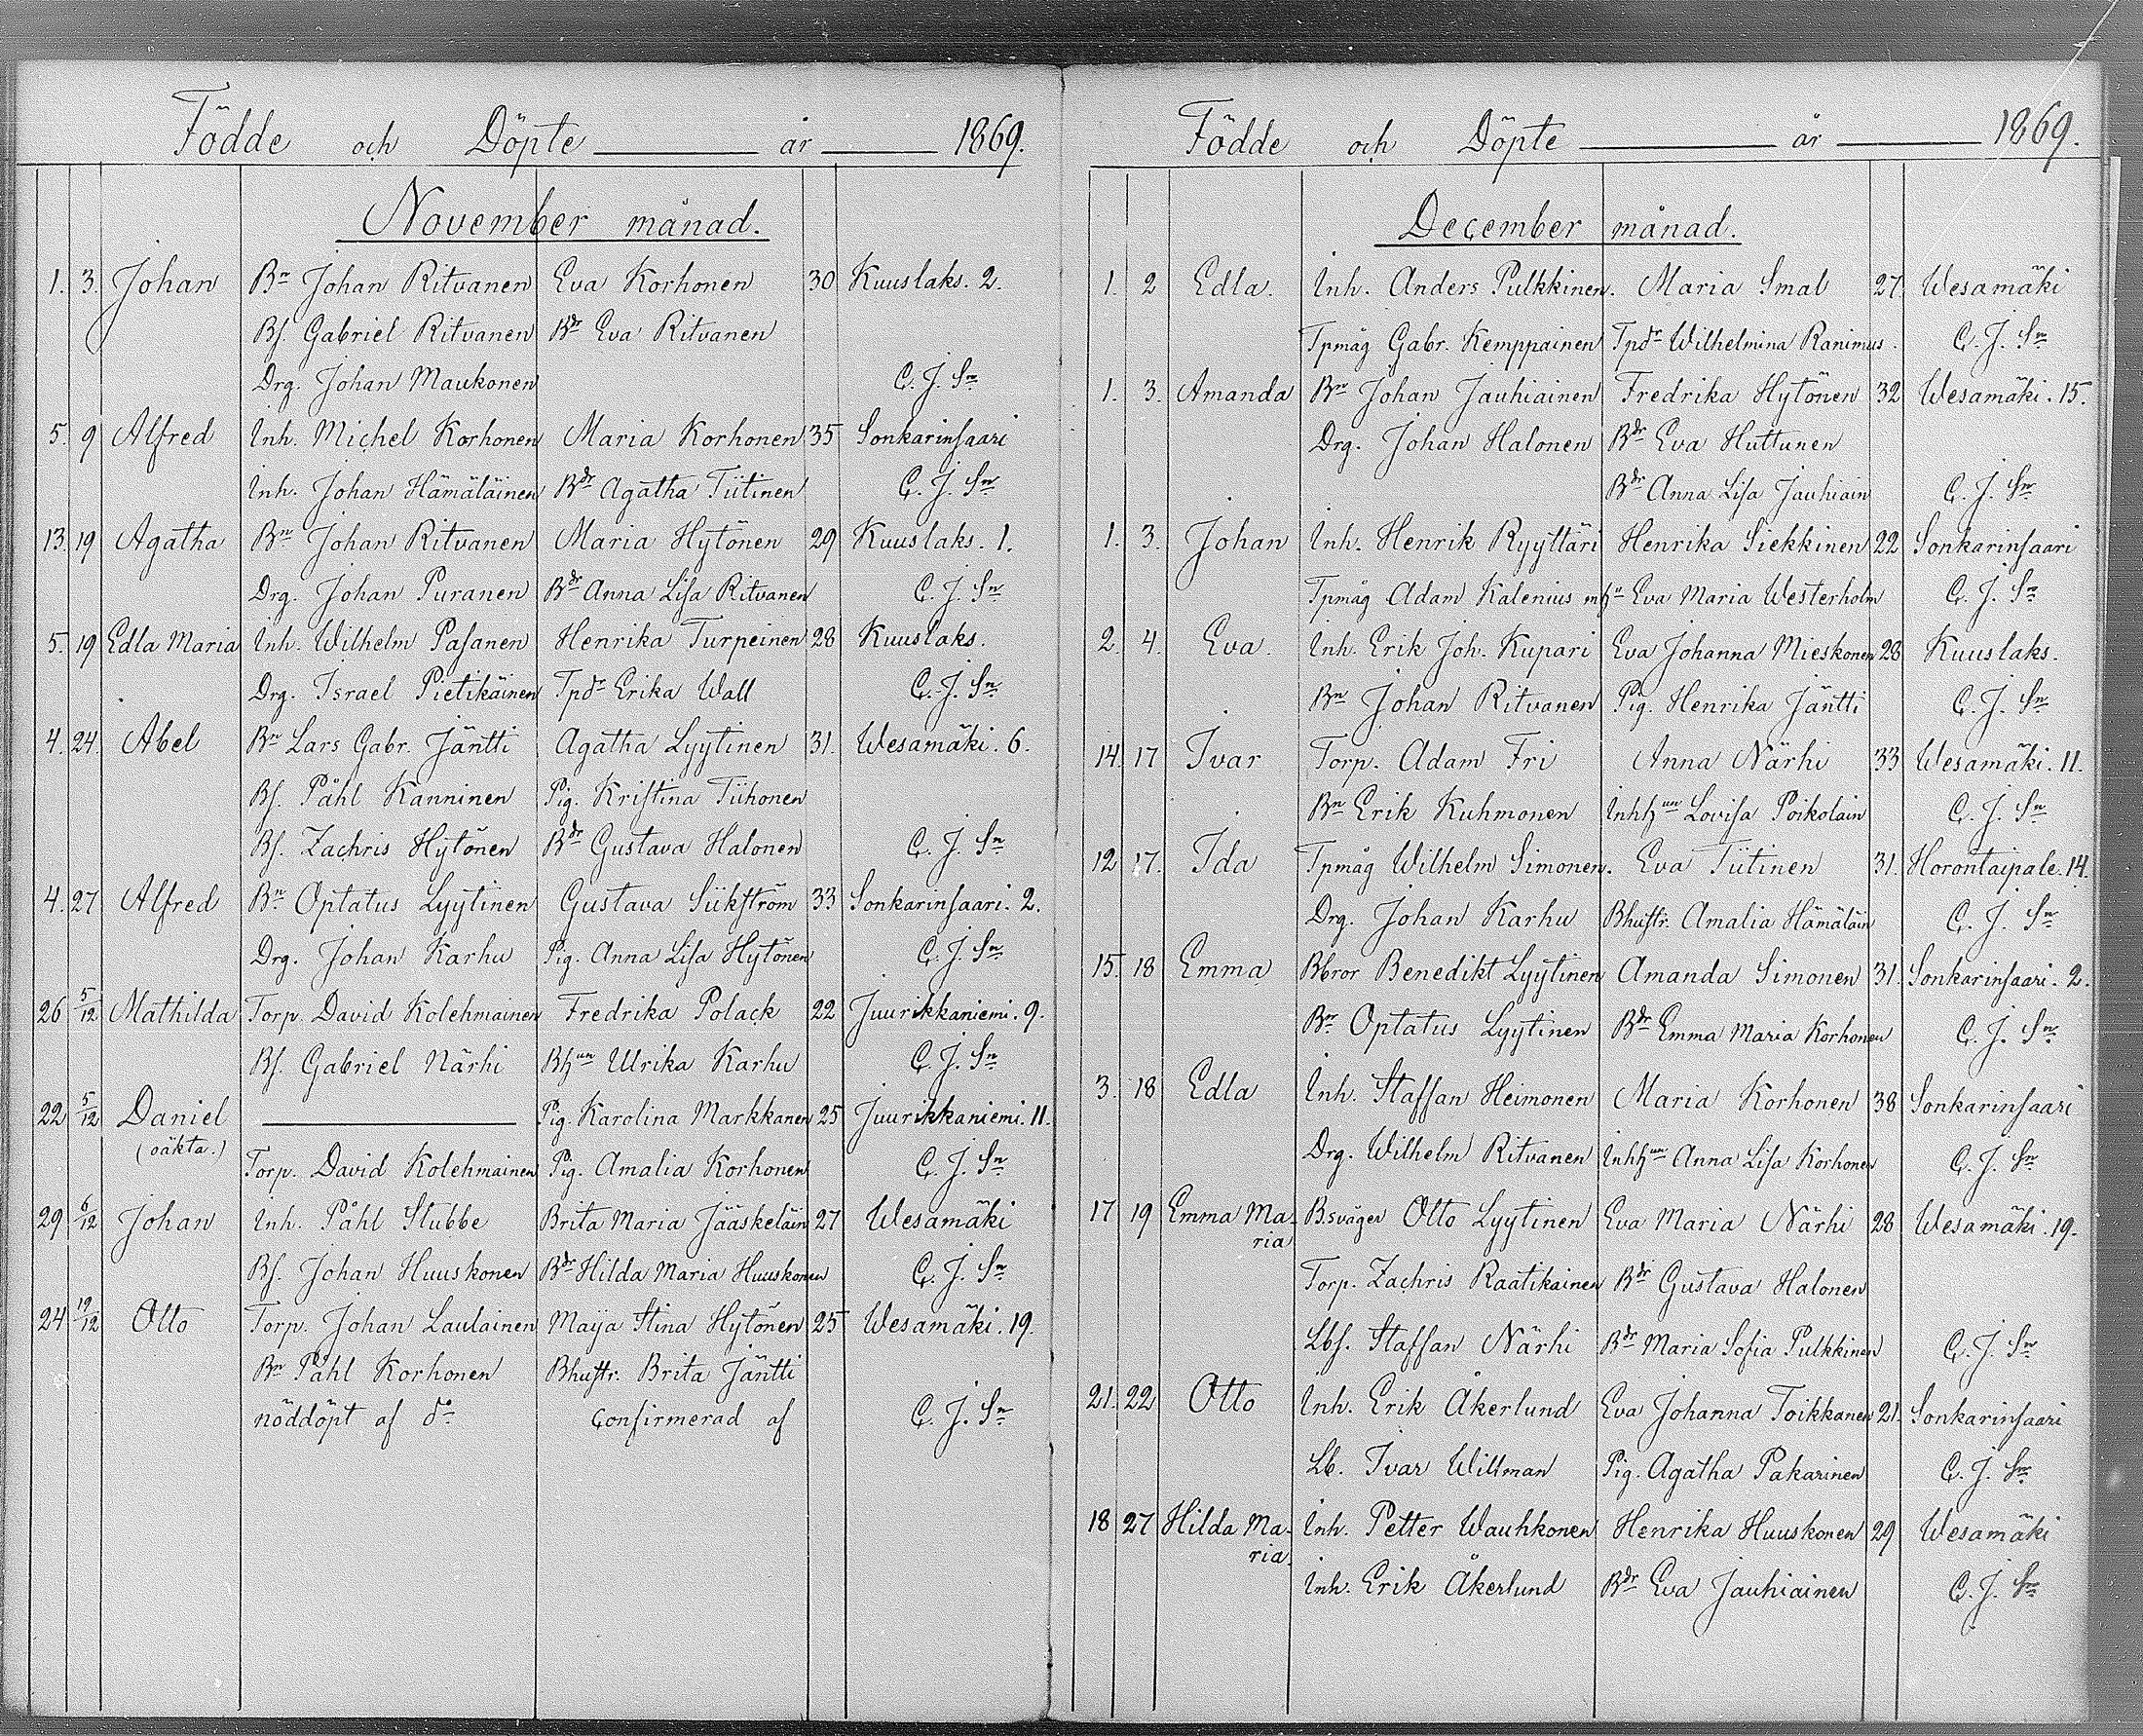 Födde och Döpte år 1869.
November månad.
1. 3. Johan Bn Johan Ritvanen Eva Korhonen 30 Kuuslaks. 2.
Bs. Gabriel Ritvanen Bdr Eva Ritvanen
Drg. Johan Maukonen C. J. Sn
5. 9 Alfred Inh. Michel Korhonen Maria Korhonen 35 Sonkarinsaari
Inh. Johan Hämäläinen Bdr Agatha Tiitinen C. J. Sn
13. 19 Agatha Bn Johan Ritvanen Maria Hytönen 29 Kuuslaks. 1.
Drg. Johan Puranen Bdr Anna Lisa Ritvanen C. J. Sn
5. 19 Edla Maria Inh. Wilhelm Pasanen Henrika Turpeinen 28 Kuuslaks.
Drg. Israel Pietikäinen Tpdr Erika Wall C. J. Sn
4. 24. Abel Bn Lars Gabr. Jäntti Agatha Lyytinen 31. Wesamäki. 6.
Bs. Påhl Kanninen Pig. Kristina Tiihonen
Bs. Zachris Hytönen Bdr Gustava Halonen C. J. Sn
4. 27 Alfred Bn Optatus Lyytinen Gustava Siikström 33 Sonkarinsaari. 2.
Drg. Johan Karhu Pig. Anna Lisa Hytönen C. J. Sn
26 5/12 Mathilda Torp. David Kolehmainen Fredrika Polack 22 Juurikkaniemi. 9.
Bs. Gabriel Närhi Bhun Ulrika Karhu C. J. Sn
22 5/12 Daniel Pig. Karolina Markkanen 25 Juurikkaniemi. 11.
(oäkta.) Torp. David Kolehmainen Pig. Amalia Korhonen C. J. Sn
29 6/12 Johan Inh. Påhl Stubbe Brita Maria Jääskeläin 27 Wesamäki
Bs. Johan Huuskonen Bdr Hilda Maria Huuskonen C. J. Sn
24 19/12 Otto Torp. Johan Laulainen Maija Stina Hytönen 25 Wesamäki. 19.
Bn Påhl Korhonen Bhustr. Brita Jäntti
nöddöpt af do confirmerad af C. J. Sn
Födde och Döpte år 1869.
December månad.
1. 2 Edla. Inh. Anders Pulkkinen. Maria Smal 27. Wesamäki
Tpmåg Gabr. Kemppainen Tpdr Wilhelmina Ranimus. C. J. Sn
1. 3. Amanda Bn Johan Jauhiainen Fredrika Hytönen 32 Wesamäki. 15.
Drg. Johan Halonen Bdr Eva Huttunen
Bdr Anna Lisa Jauhiain C. J. Sn
1. 3. Johan Inh. Henrik Ryyttäri Henrika Siekkinen 22 Sonkarinsaari
Tpmåg Adam Kalenius mhu Eva Maria Westerholm C. J. Sn
2. 4. Eva. Inh. Erik Joh. Kupari Eva Johanna Mieskonen 28 Kuuslaks.
Bn Johan Ritvanen Pig. Henrika Jäntti C. J. Sn
14. 17 Ivar Torp. Adam Fri Anna Närhi 33 Wesamäki. 11.
Bn Erik Kuhmonen Inhhun Lovisa Poikolain C. J. Sn
12 17. Ida Tpmåg Wilhelm Simonen. Eva Tiitinen 31. Horontaipale. 14.
Drg. Johan Karhu Bhustr. Amalia Hämäläin C. J. Sn
15. 18 Emma Bbror Benedikt Lyytinen Amanda Simonen 31. Sonkarinsaari. 2.
Bn Optatus Lyytinen Bdr Emma Maria Korhonen C. J. Sn
3. 18 Edla Inh. Staffan Heimonen Maria Korhonen 38 Sonkarinsaari
Drg. Wilhelm Ritvanen Inhhun Anna Lisa Korhonen C. J. Sn
17 19 Emma Ma- B.svåger Otto Lyytinen Eva Maria Närhi 28 Wesamäki. 19.
ria
Torp. Zachris Raatikainen Bdr Gustava Halonen
Lbs. Staffan Närhi Bdr Maria Sofia Pulkkinen C. J. Sn
21. 22 Otto Inh. Erik Åkerlund Eva Johanna Toikkanen 21. Sonkarinsaari
Lb. Ivar Willman Pig. Agatha Pakarinen C. J. Sn
18 27 Hilda Ma- Inh. Petter Wauhkonen Henrika Huuskonen 29 Wesamäki
ria.
Inh. Erik Åkerlund Bdr Eva Jauhiainen C. J. Sn